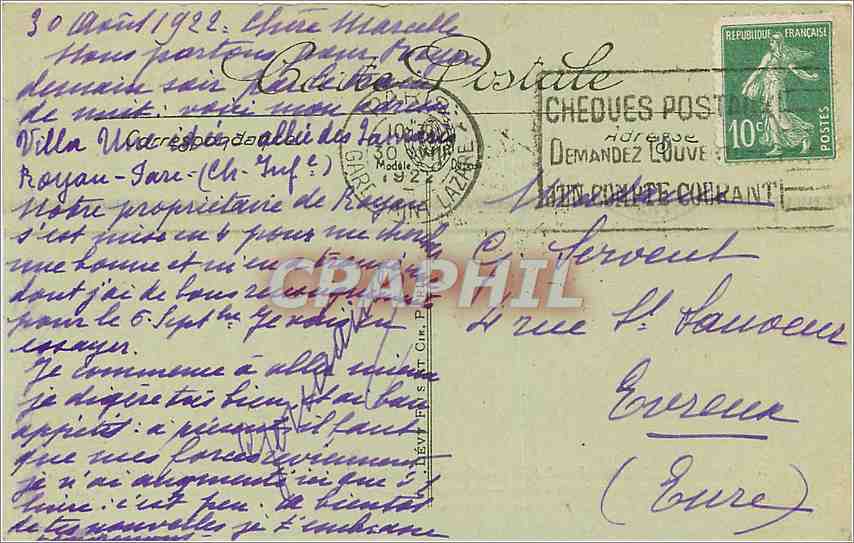 30 Août 1922. Chère Marcelle
Nous partons pour Royan
demain soir par le train
de nuit : voici mon adresse
Villa Mon idée allée des
Royan-Parc-(Ch-Infre)
Notre propriétaire de Royan
s'est mise en 4 pour me cherche
une bonne et m'en
dont j'ai de bons renseignements
pour le 6 Septbre Je vais
essayer.
Je commence à aller mieux
je digère très bien et ai bon
appétit : à présent il faut
que mes forces reviennent
je n'ai augmenté ici que
livre : c'est peu. à bientôt
de tes nouvelles je t'embrasse
Carte Postale
Correspondance
Modèle
Adresse
GARE
LAZARE
30
1922
CHEQUES POSTAUX
DEMANDEZ L'OUVERTURE
D'UN COMPTE COURANT
REPUBLIQUE FRANÇAISE
10c
POSTES
G. Servent
4 rue St Sauveur
Evreux
(Eure)
LÉVY FILS ET CIE, PARIS
CPAPHIL